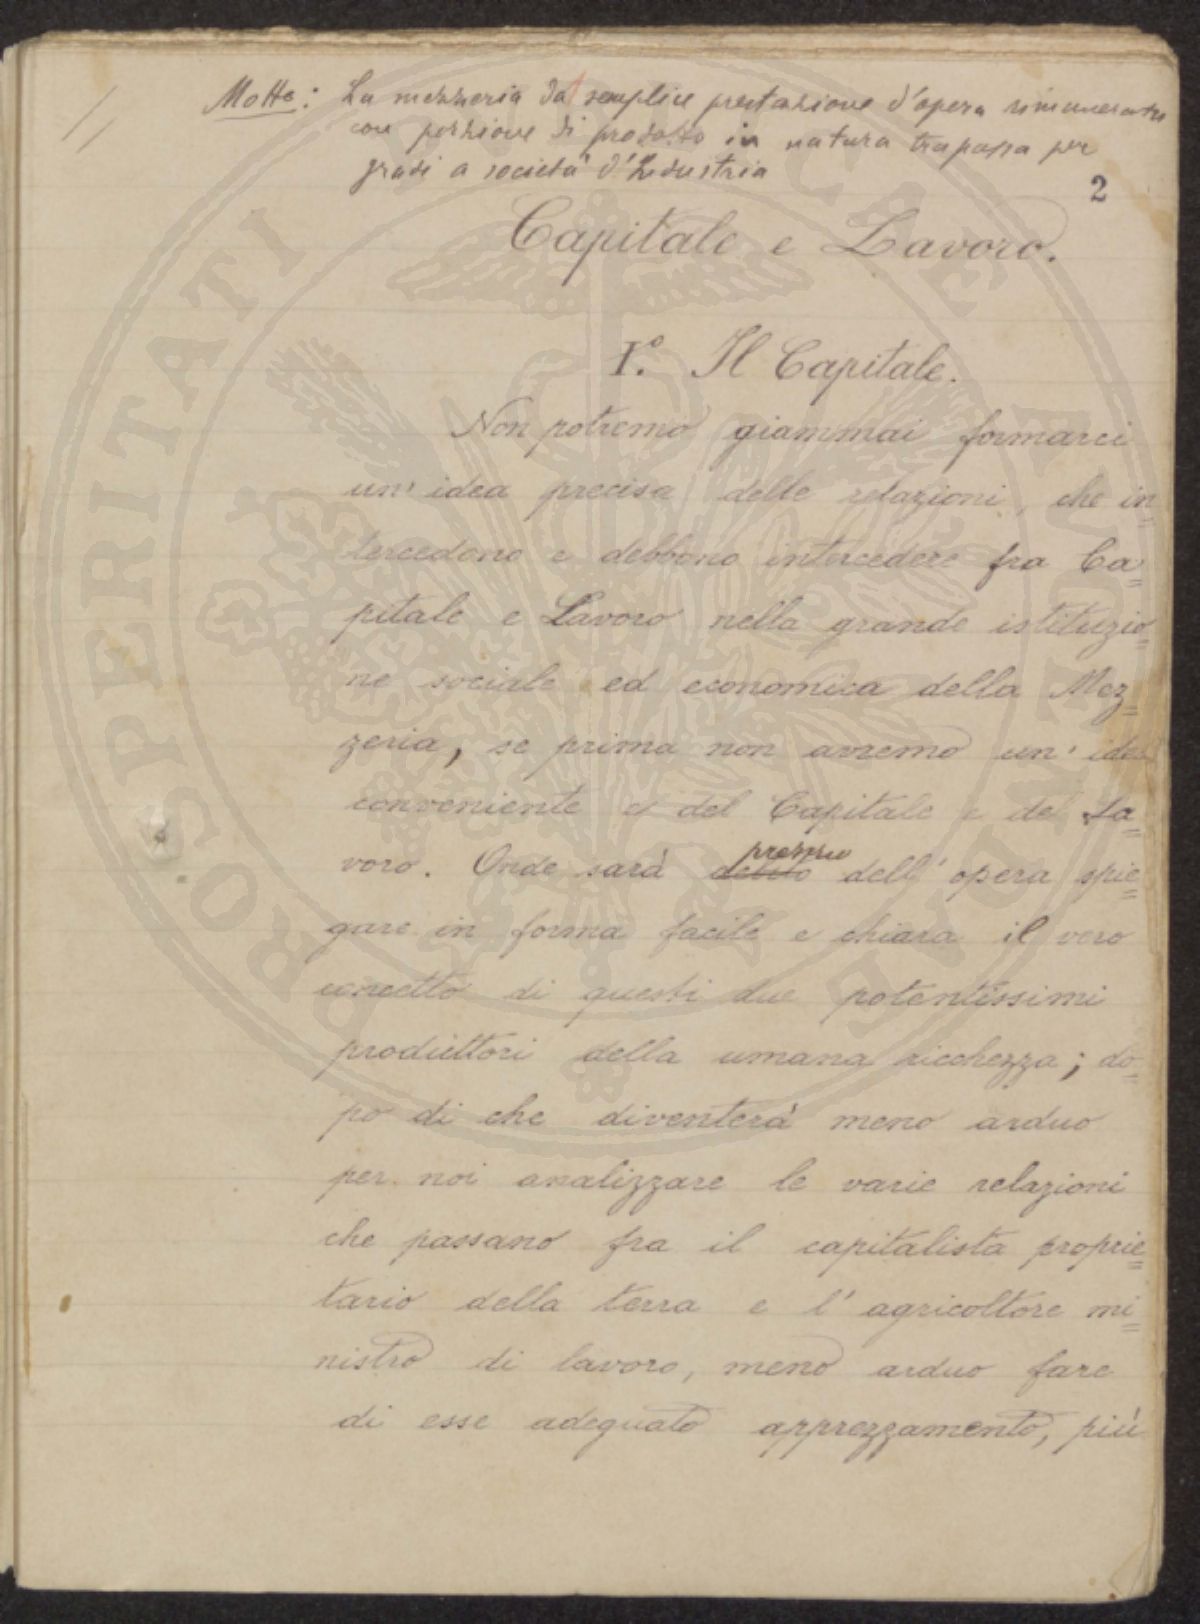 Motto: La mezzeria da semplice prestazione d'opera rimunerata
con porzione di prodotto in natura trapassa per
gradi a società d'Industria
2
Capitale e Lavoro.
I.° Il Capitale.
Non potremo giammai formarci
un' idea precisa delle relazioni, che in=
tercedono e debbono intercedere fra Ca=
pitale e Lavoro nella grande istituzio=
ne sociale ed economica della Mez=
zeria, se prima non avremo un' idea
conveniente e del Capitale e del La=
voro. Onde sarà debito prezzo dell' opera spie=
gare in forma facile e chiara il vero
concetto di questi due potentissimi
produttori della umana ricchezza; do=
po di che diventerà meno arduo
per noi analizzare le varie relazioni
che passano fra il capitalista proprie=
tario della terra e l' agricoltore mi=
nistro di lavoro, meno arduo fare
di esse adeguato apprezzamento, più
PROSPERITATI PUBLICAE AUGENDAE